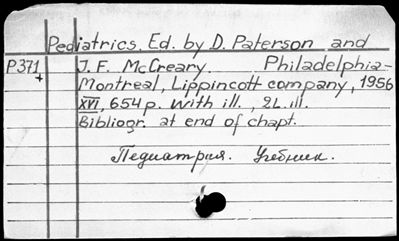 Pediatrics. Ed. by D. Paterson and
P371 J. F. McCreary. Philadelphia-
+ Montreal, Lippincott company, 1956
XVI, 654 p. With ill., 2 L. ill.
Bibliogr. at end of chapt.
Педиатрия. Учебник.